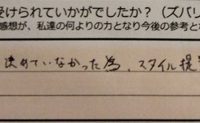 受けられていかがでしたか？（ズバリ
感想が、私達の何よりの力となり今後の参考と
決めていなかった為、スタイル提